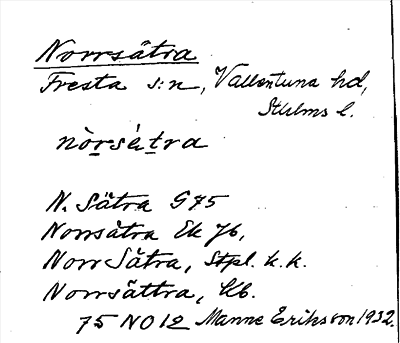 Norrsätra
Fresta s:n, Vallentuna hd,
Sthlms l.
nòrsètra
N. Sätra G75
Norrsätra Ek 76,
Norr Sätra, Stpl. k.k.
Norrsättra, Kb.
75 NO 12 Manne Eriksson 1932.